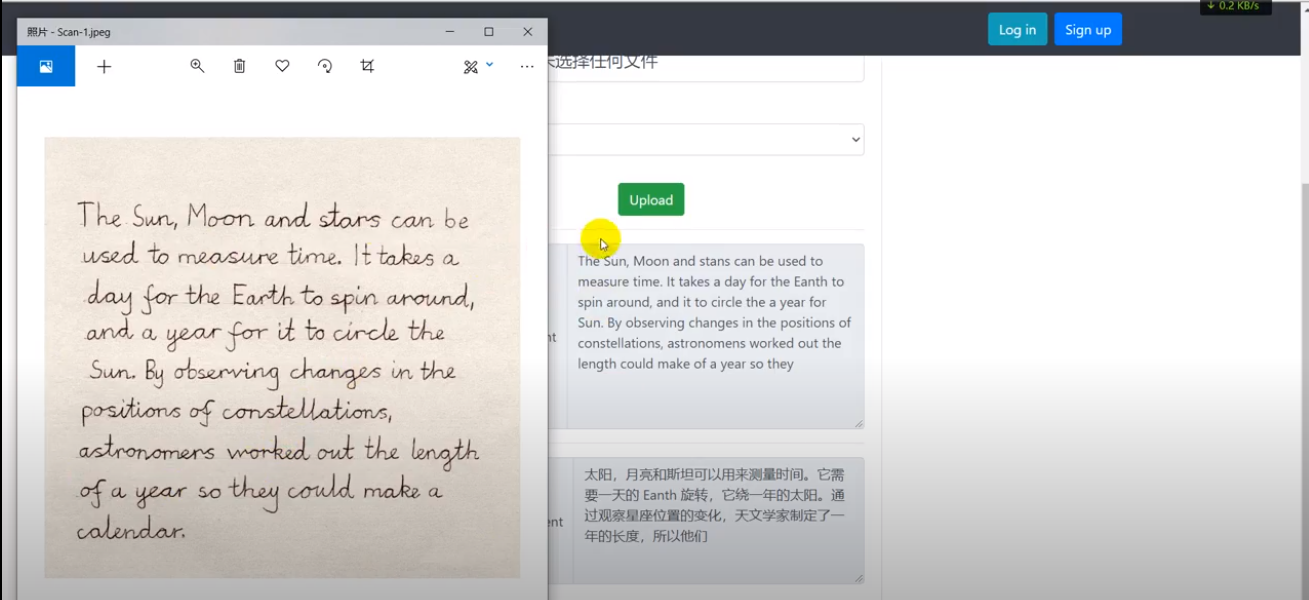 ↓ 0.2 KB/s
照片 - Scan-1.jpeg
Log in
Sign up
选择任何文件
Upload
The Sun, Moon and stars can be
used to measure time. It takes a
day for the Earth to spin around,
and a year for it to circle the
Sun. By observing changes in the
positions of constellations,
astronomers worked out the length
of a year so they could make a
calendar.
The Sun, Moon and stans can be used to
measure time. It takes a day for the Eanth to
spin around, and it to circle the a year for
Sun. By observing changes in the positions of
constellations, astronomens worked out the
length could make of a year so they
太阳，月亮和斯坦可以用来测量时间。它需
要一天的 Eanth 旋转，它绕一年的太阳。通
过观察星座位置的变化，天文学家制定了一
年的长度，所以他们